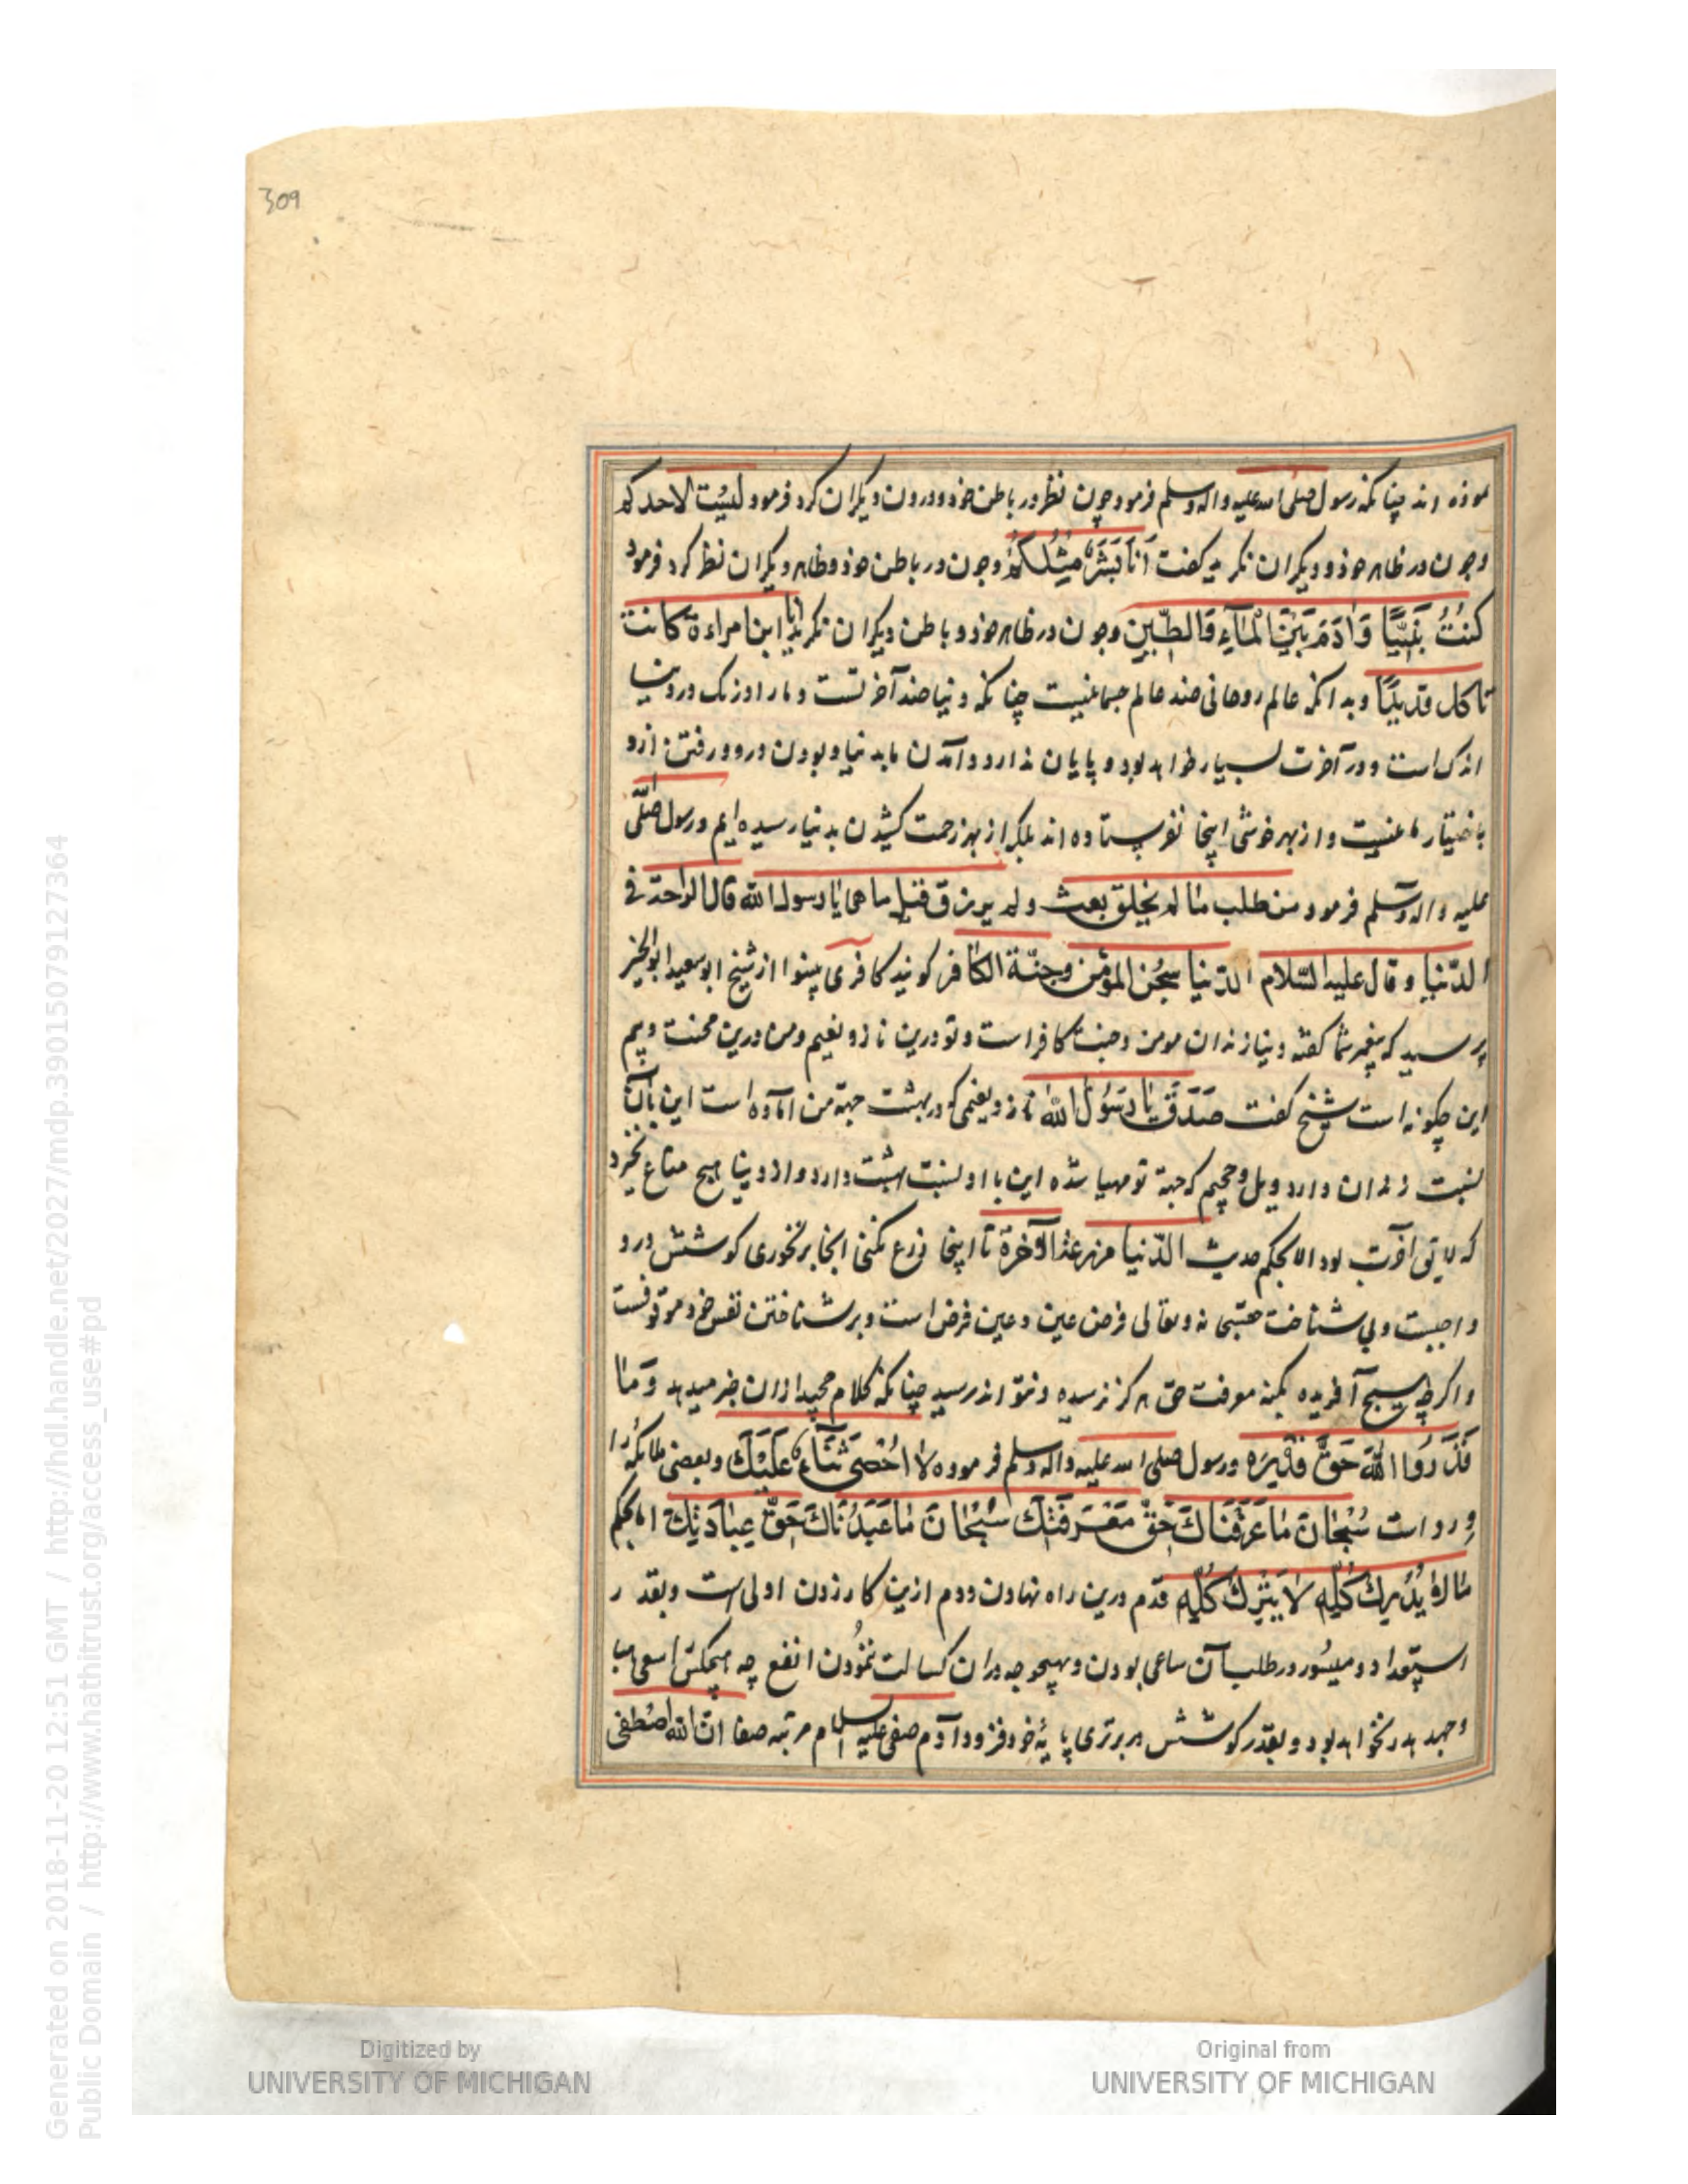 309
موذه اند چنانکه رسول صلی الله علیه واله وسلم فرمود چون نظر در باطن خوذ و درون دیکران کرد فرمود لسُیت لاحدکم
وچون در ظاهر خوذ و دیکران نکرید کفت اَنَا بَشَرٌ مِثْلُكُمْ وچون در باطن خوذ وظاهر دیکران نظر کرد فرمود
كُنْتُ نَبِيًّا وَاٰدَمَ بَيْنَ الْمَآءِ وَالطّينِ وچون در ظاهر خوذ و باطن دیکران نکرید انا ابن امراءة كانت
تاكل قديدًا وبدانکه عالم روحانی ضد عالم جسمانیست چنانکه دنیا ضد آخرتست و مار ا درنک در دنیا
اندک است و در آخرت بسیار خواهد بود و پایان ندارد و آمدن ما بدنیا و بودن درو و رفتن ازو
باختیار ما نیست و از بهر خوشی اینجا نفرستاده اند بلکه از بهر زحمت کشیدن بدنیا رسیده ایم و رسول صلّی
علیه واله وسلم فرمود من طلب ما لم يخلق بعث ولم يرزق قيل ما هى يا رسول الله قال الراحة فى
الدّنيا و قال عليه السّلام الدّنيا سجن المؤمن وجنّة الكافر کویند کافری بینوا از شیخ ابوسعید ابوالخیر
پرسید که پیغمبر شما کفته دنیا زندان مومن وجنت کافر است و تو درین ناز و نعیم ومن درین محنت وبیم
این چکونه است شیخ کفت صَدَقَ يَا رَسُولَ الله ناز و نعیمی که در بهشت جهة من آماده است این با آن
نسبت زندان دارد و ویل و جحیم که جهة تو مهیا شده این با او نسبت بهشت دارد و از دنیا هیچ متاع نخرد
که لایق آخرت بود الا بحکم حدیث الدّنيا مزرعة الآخرة تا اینجا زرع نکنی انجا برنخوری کوشش درو
واجبست و بی شناخت حقسبحانه وتعالی فرض عین و عین فرض است و بر شناختن نفس خود موقوفست
و اکرچه هیچ آفریده بکنه معرفت حق هرکز نرسیده ونتواند رسید چنانکه کلام مجید ازان خبر میدهد وَمَا
قَدَرُوا اللّٰهَ حَقَّ قَدْرِه ورسول صلی الله علیه واله وسلم فرموده لَا اُحْصِى ثَنَاءً عَلَيْكَ وبعضی ملائکه را
ورد است سُبْحَانَ مَا عَرَفْنَاكَ حَقَّ مَعْرِفَتِكَ سُبْحَانَ مَا عَبَدْنَاكَ حَقَّ عِبَادَتِكَ اما بحکم
مَا لَا يُدْرِكُ كُلُّهُ لَا يُتْرَكُ كُلُّهُ قدم درین راه نهادن و دم ازین کار زدن اولی است وبقدر
استعداد و میسور در طلب آن ساعی بودن و بهیچوجه دران کسالت نمُودن انفع چه هیچکس را سعی هبا
وجهد هدر نخواهد بود و بقدر کوشش هر برتری پایۀ خود فزود آدم صفی علیه السلام مرتبه صفا ان الله اصطفى
Digitized by
UNIVERSITY OF MICHIGAN
Original from
UNIVERSITY OF MICHIGAN
Generated on 2018-11-20 12:51 GMT / http://hdl.handle.net/2027/mdp.39015079127364
Public Domain / http://www.hathitrust.org/access_use#pd